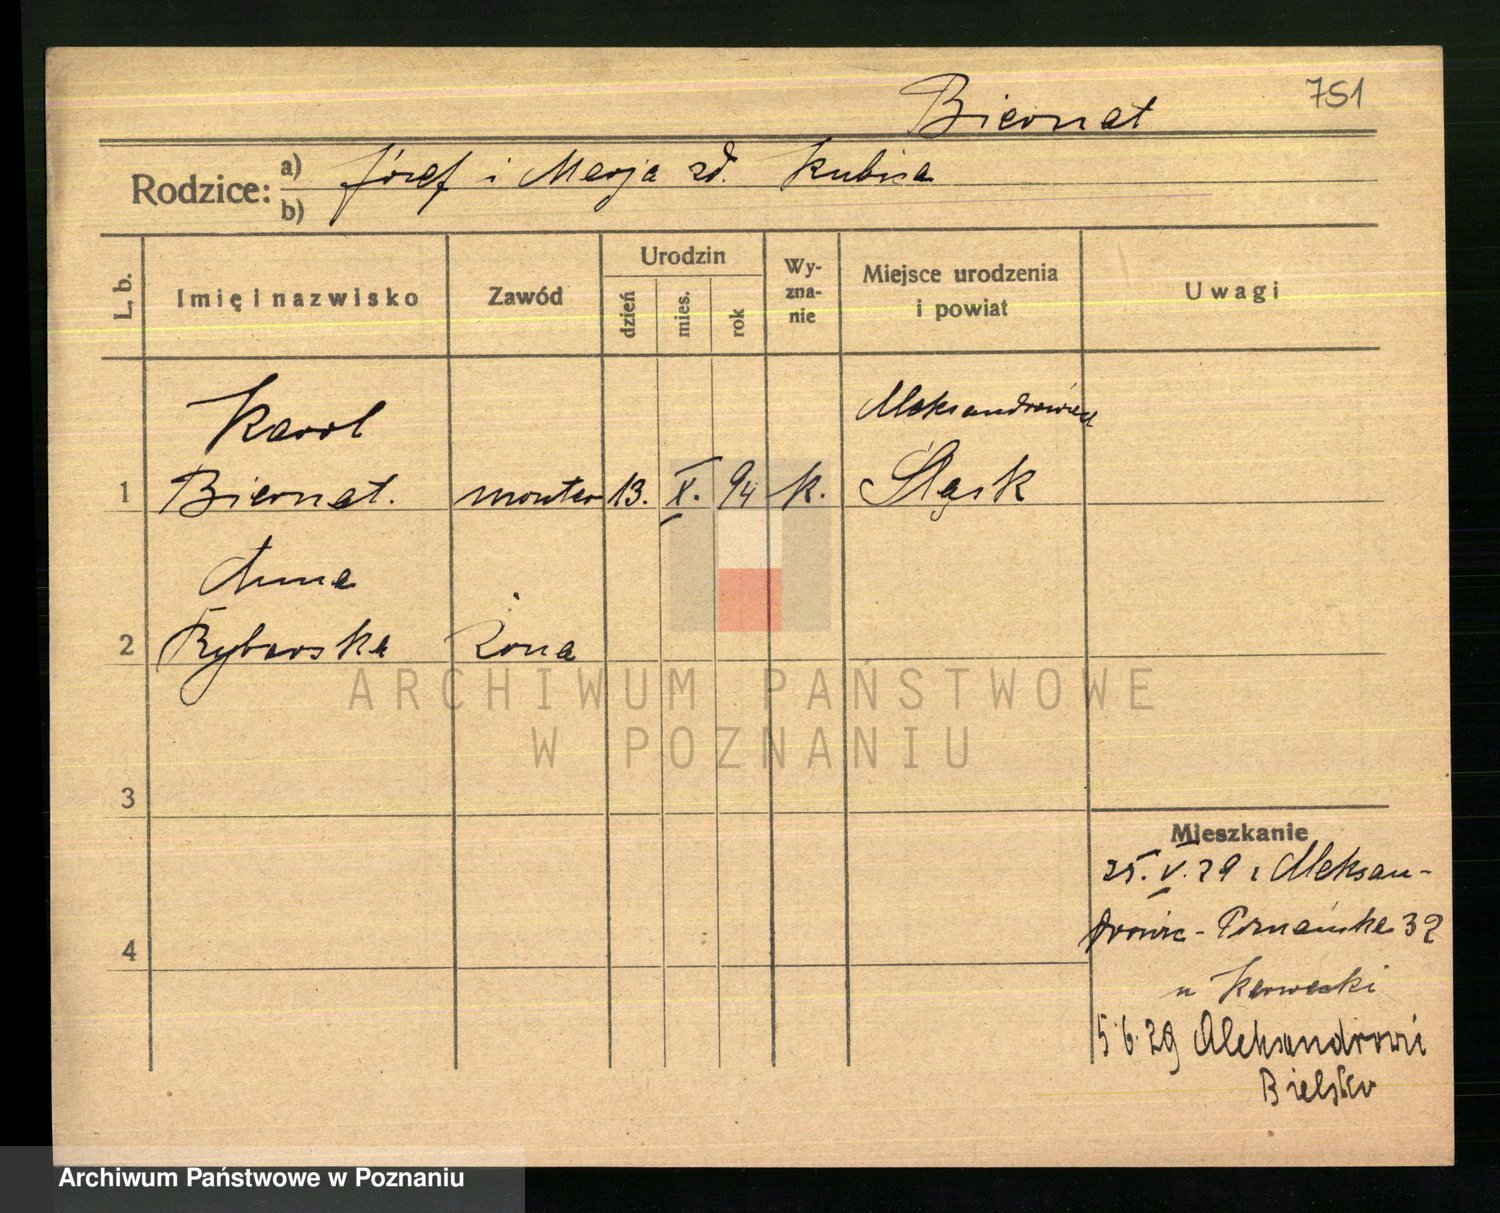 751
Biernat
Rodzice: a) Józef i Marja zd. Kubica
b)
L. b.
Imię i nazwisko
Zawód
Urodzin
dzień
mies.
rok
Wy-
zna-
nie
Miejsce urodzenia
i powiat
Uwagi
Karol
Aleksandrowice
1 Biernat. monter 13. X. 94 k. Śląsk
Anna
2 Rybarska żona
ARCHIWUM PAŃSTWOWE
W POZNANIU
3
Mieszkanie
25.V.29 z Aleksan-
drowic - Poznańska 32
4
u
5.6.29 Aleksandrowi
Bielsko
Archiwum Państwowe w Poznaniu